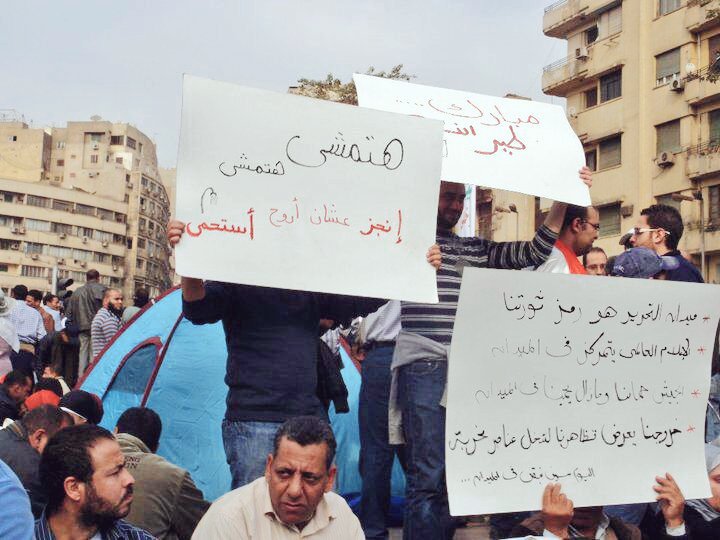 هتمشى
هتمشى
إنجز عشان أروح أستحمى
مبارك....
طير
* ميدان التحرير هو رمز ثورتنا
* الإعلام العالمى يتمركز فى الميدان
* الجيش حمانا ومازال يحمينا فى الميدان
* خروجنا يعرض تظاهرنا لتدخل عناصر تخريبية
فى الميدان...